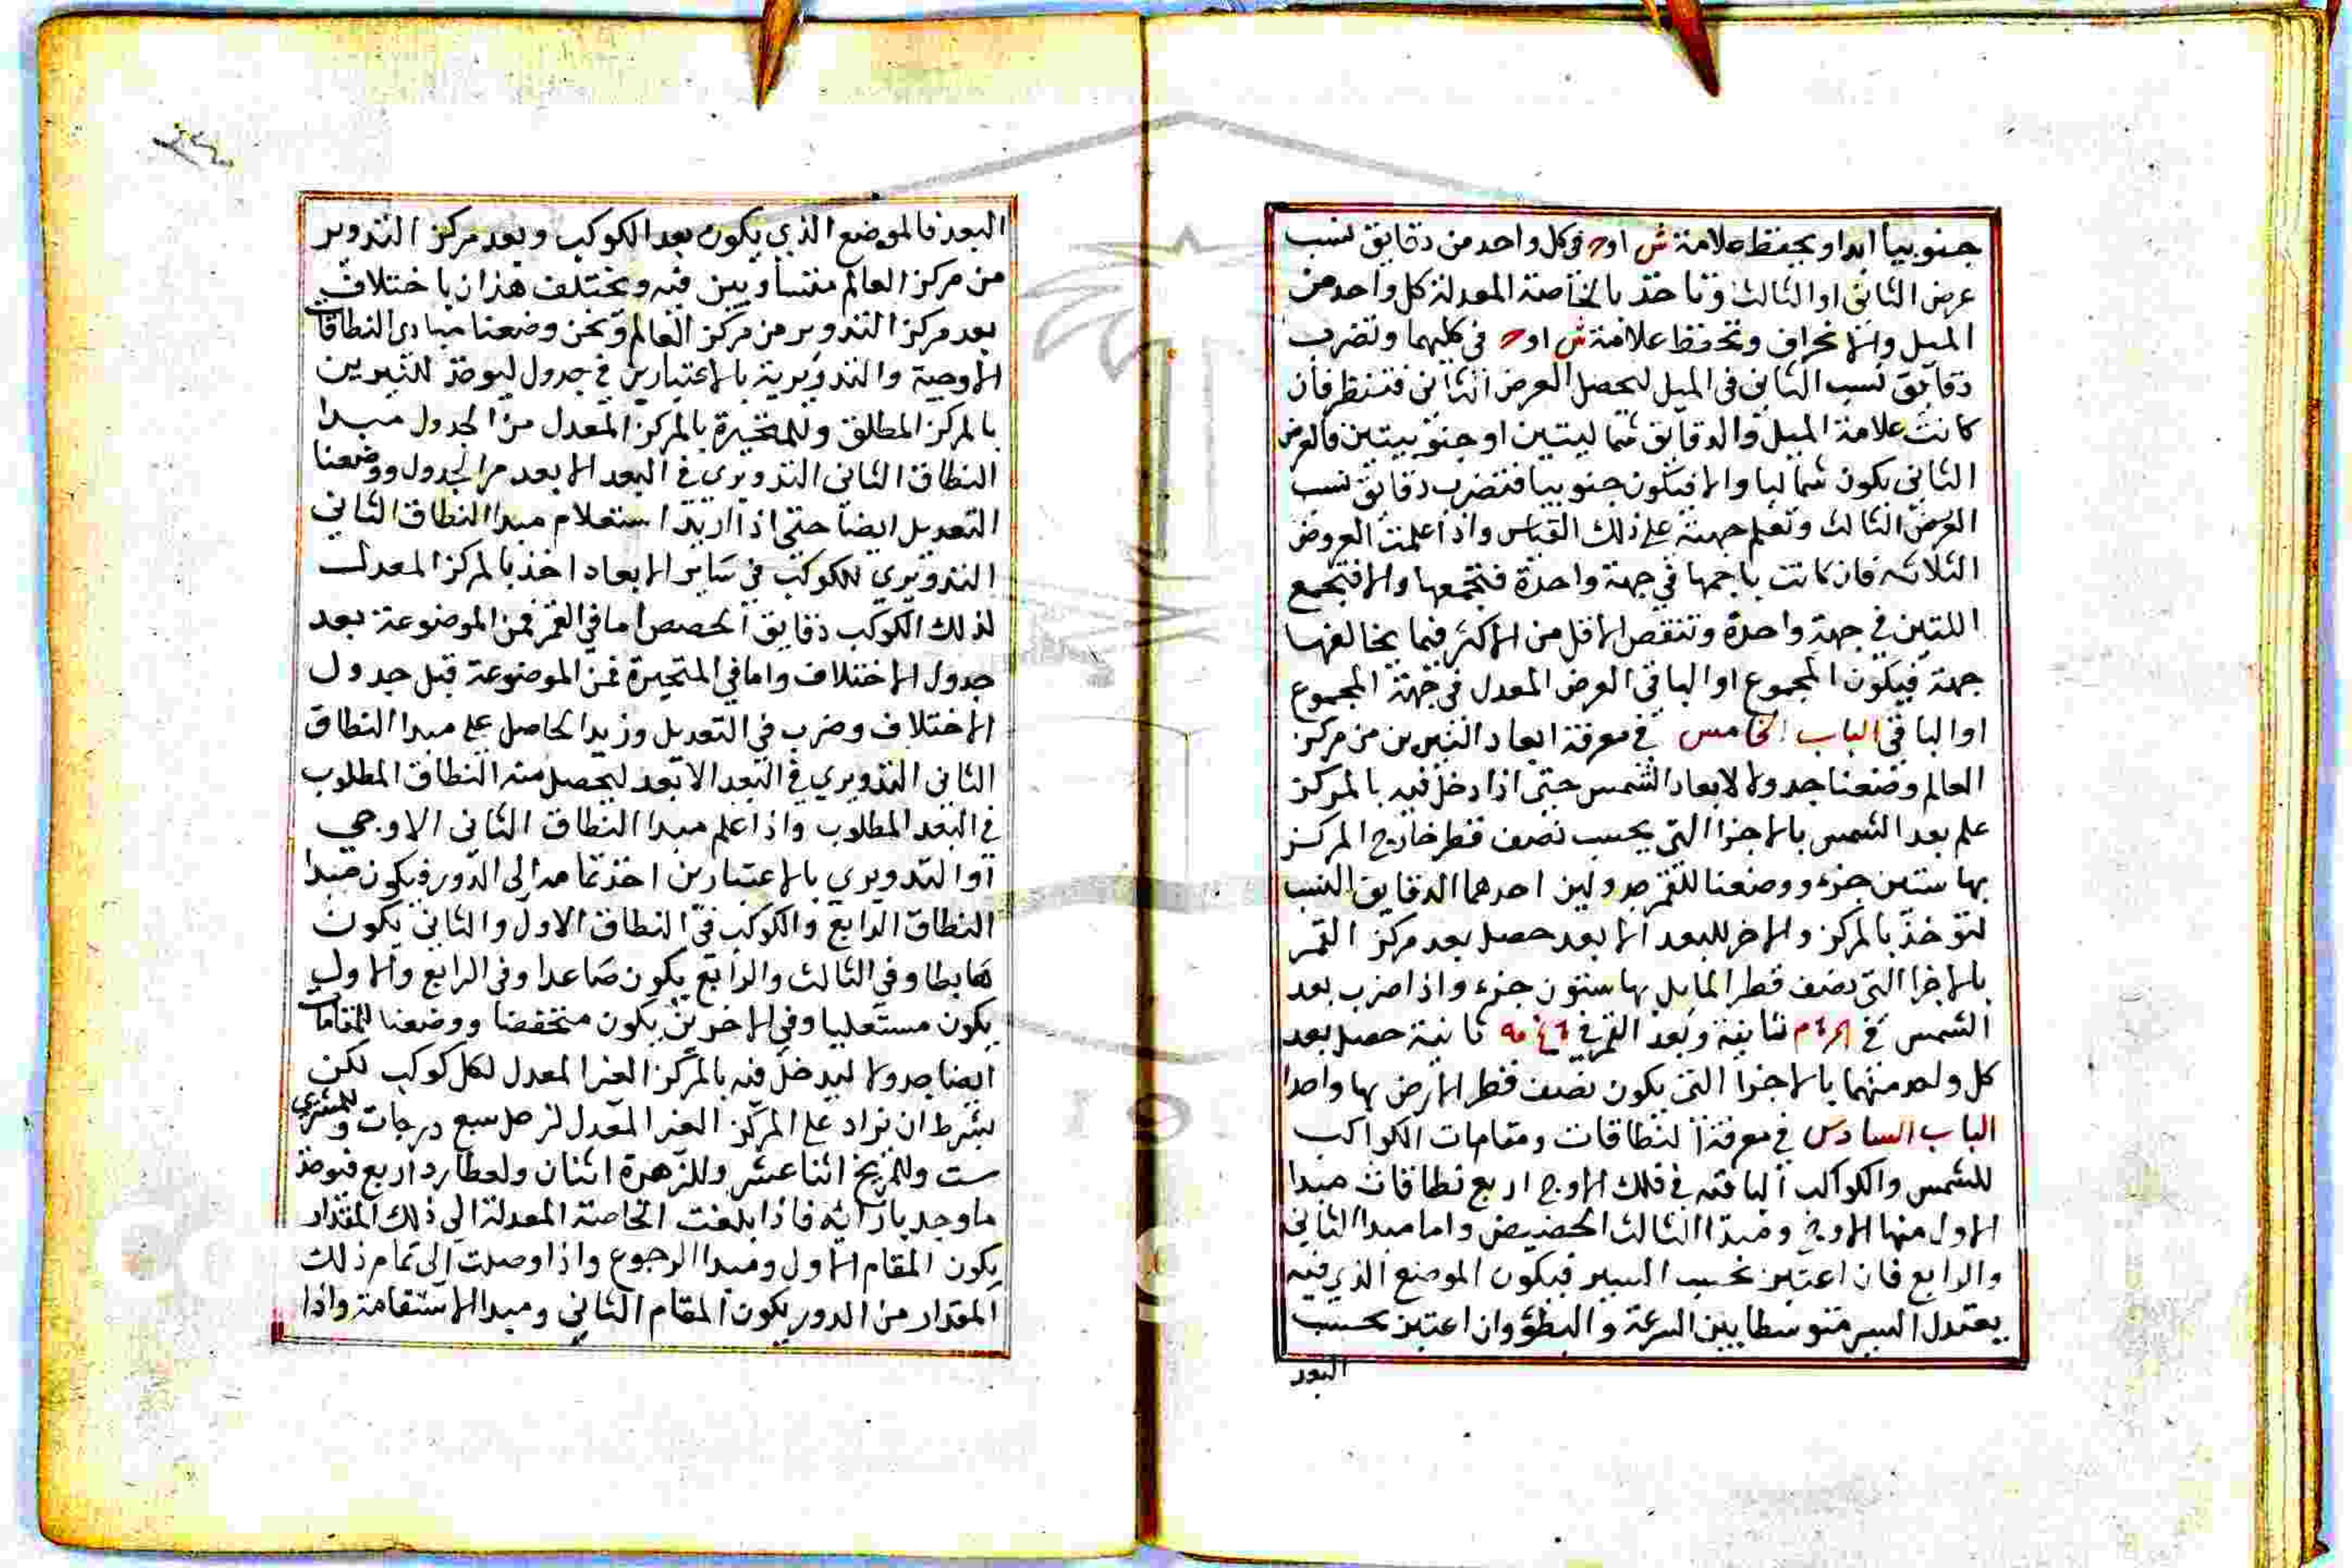 جنوبيا ابدا ويحفظ علامة ش او ج في كل واحد من دقايق نسب
عرض الثاني او الثالث وتاخذ بالخاصة المعدلة كل واحد من
الميل والانحراف وتحفظ علامة ش او ج في كليهما وتضرب
دقايق نسب الثاني في الميل ليحصل العرض الثاني فتنظر فان
كانت علامة الميل والدقايق شماليتين او جنوبيتين فالعرض
الثاني يكون شماليا والا فيكون جنوبيا فتضرب دقايق نسب
العرض الثالث وتعلم جهته على ذلك القياس واذا علمت العروض
الثلاثه فان كانت باجمها في جهة واحدة فتجمعها والا فتجمع
اللتين في جهة واحدة وتنقص الاقل من الاكثر فيما يخالفها
جهة فيكون المجموع او الباقي العرض المعدل في جهة المجموع
او الباقي الباب الخامس في معرفة ابعاد النيرين من مركز
العالم وضعنا جدولا لابعاد الشمس حتى اذا دخل فيه بالمركز
علم بعد الشمس بالاجزا التي بحسب نصف قطر خارج المركز
بها ستين جزء ووضعنا للقمر جدولين احدهما الدقايق النسب
لتوخذ بالمركز والاخر للبعد الابعد حصل بعد مركز القمر
بالاجزا التي نصف قطر المايل بها ستون جزء واذا ضرب بعد
الشمس في ثانية وبعد القمر في ثانية حصل بعد
كل واحد منهما بالاجزا التي يكون نصف قطر الارض بها واحدا
الباب السادس في معرفة النطاقات ومقامات الكواكب
للشمس والكواكب الباقيه في فلك الاوج اربع نطاقات مبدا
الاول منها الاوج ومبدا الثالث الحضيض واما مبدا الثاني
والرابع فان اعتبر بحسب السير فيكون الموضع الذي فيه
يعتدل السير متوسطا بين السرعة والبطؤ وان اعتبر بحسب
البعد
البعد فالموضع الذي يكون بعد الكوكب وبعد مركز التدوير
من مركز العالم متساويين فيه ويختلف هذان باختلاف
بعد مركز التدوير من مركز العالم ونحن وضعنا مبادي النطاقات
الاوجية والتدويرية بالاعتبارين في جدول ليوخذ للنيرين
بالمركز المطلق وللمتحيرة بالمركز المعدل من الجدول مبدا
النطاق الثاني التدويري في البعد الابعد من الجدول ووضعنا
التعديل ايضا حتى اذا اريد استعلام مبدا النطاق الثاني
التدويري للكوكب في ساير الابعاد اخذ بالمركز المعدل
لذلك الكوكب دقايق الحصص اما في القمر فمن الموضوعة بعد
جدول الاختلاف واما في المتحيرة فمن الموضوعة قبل جدول
الاختلاف وضرب في التعديل وزيد الحاصل على مبدا النطاق
الثاني التدويري في البعد الابعد ليحصل منه النطاق المطلوب
في البعد المطلوب واذا علم مبدا النطاق الثاني الاوجي
او التدويري بالاعتبارين اخذ تمامه الى الدور فيكون مبدا
النطاق الرابع والكوكب في النطاق الاول والثاني يكون
هابطا وفي الثالث والرابع يكون صاعدا وفي الرابع والاول
يكون مستعليا وفي الاخرين يكون منخفضا ووضعنا للمقامات
ايضا جدولا ليدخل فيه بالمركز الغير المعدل لكل كوكب لكن
بشرط ان يزاد على المركز الغير المعدل لزحل سبع درجات وللمشتري
ست وللمريخ اثنا عشر وللزهرة اثنان ولعطارد اربع فيوخذ
ما وجد بازائه فاذا بلغت الخاصة المعدلة الى ذلك المقدار
يكون المقام الاول ومبدا الرجوع واذا وصلت الى تمام ذلك
المقدار من الدور يكون المقام الثاني ومبدا الاستقامة واذا